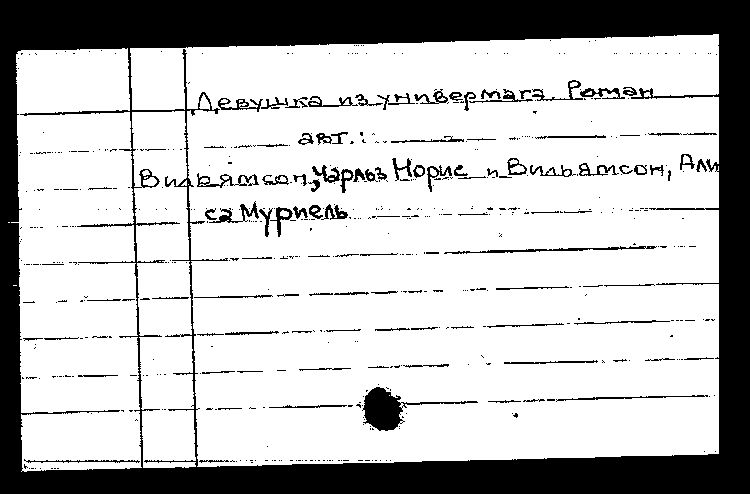 Девушка из универмага. Роман
авт.:
Вильямсон, Чарльз Норис и Вильямсон, Али
са Муриель